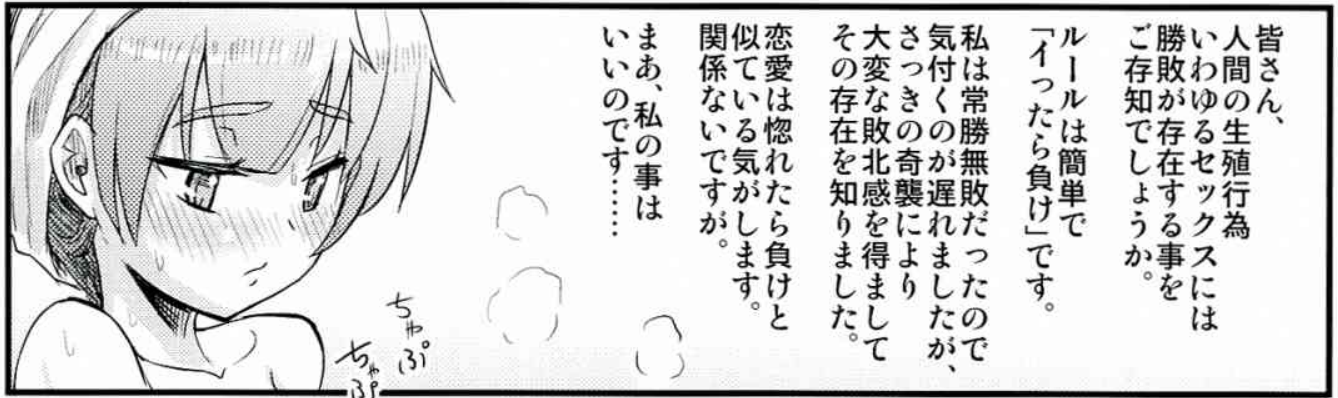 皆さん、
人間の生殖行為
いわゆるセックスには
勝敗が存在する事を
ご存知でしょうか。
ルールは簡単で
「イったら負け」です。
私は常勝無敗だったので
気付くのが遅れましたが、
さっきの奇襲により
大変な敗北感を得まして
その存在を知りました。
恋愛は惚れたら負けと
似ている気がします。
関係ないですが。
まあ、私の事は
いいのです……
ちゃぷ
ちゃぷ